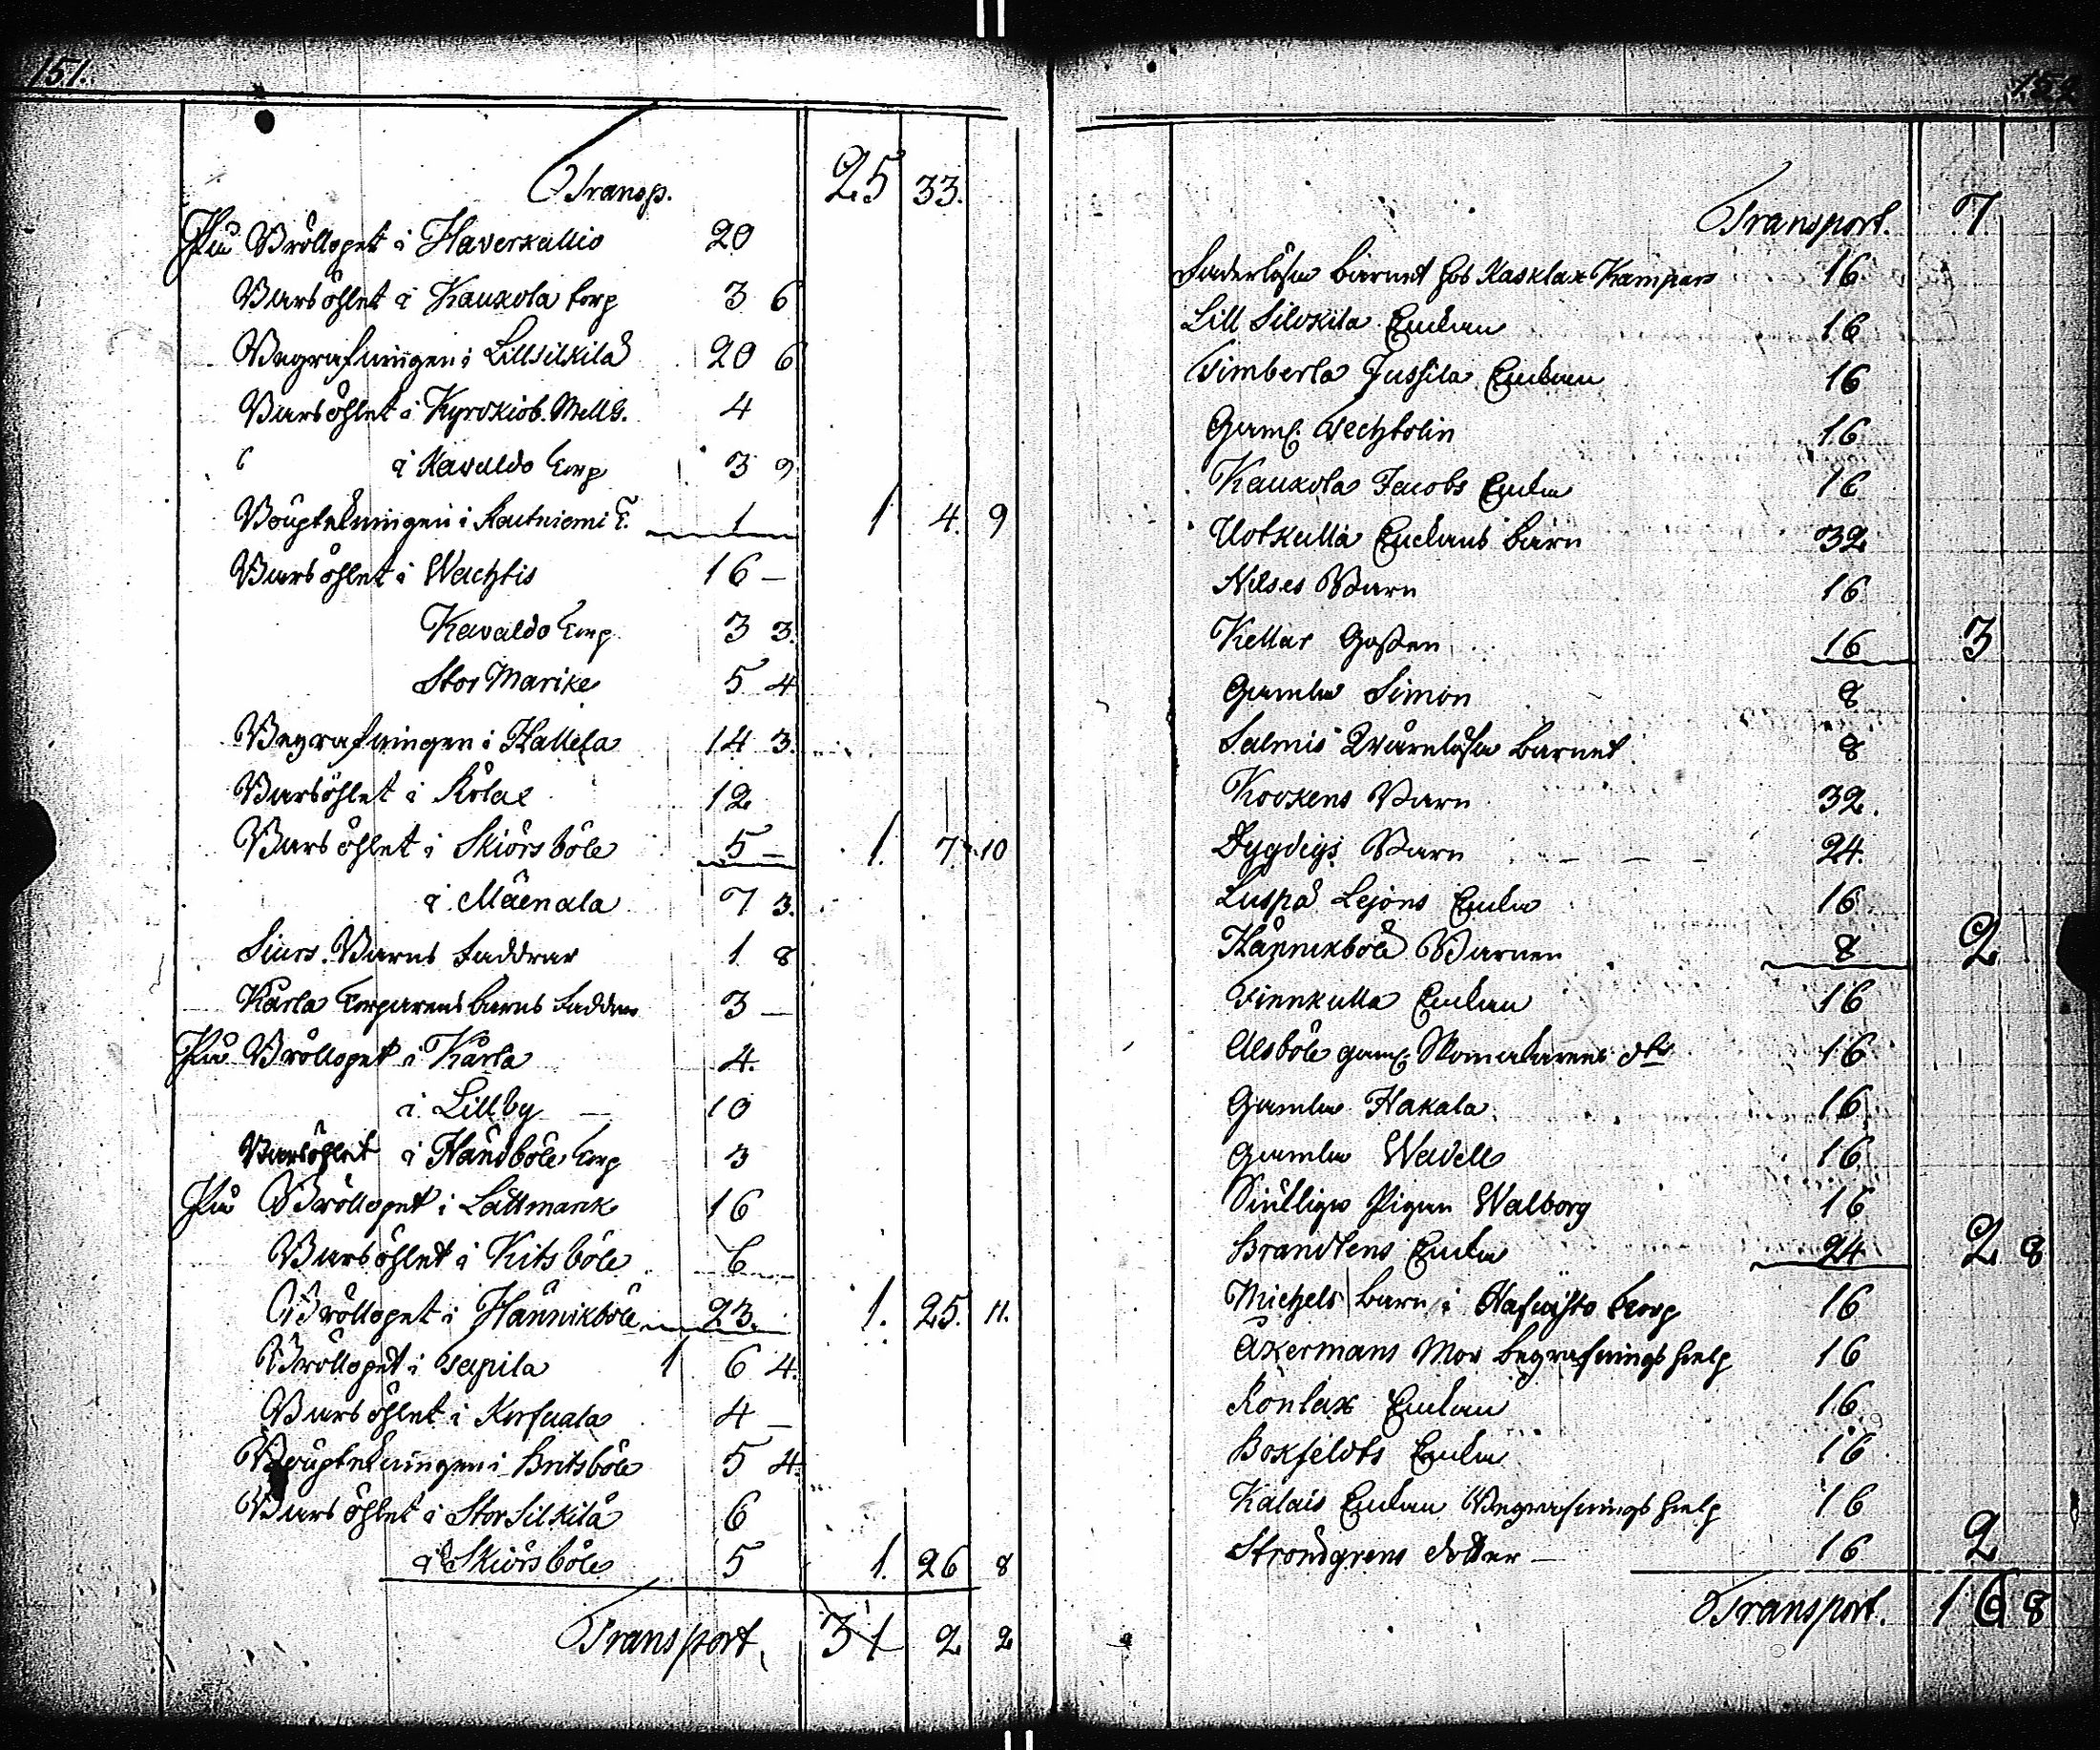 151.
Transp. 25 33.
På Bröllopet i Haverkullio 20
Barsöhlet i Kauxola torp 3 6
Begrafningen i Lillsilkilä 20 6
Barsöhlet i Kyrokiob. Mellg. 4
" i Kavaldo torp 3 9
Wouptekningen i Rautniemi T. 1 1 4. 9
Barsöhlet i Wachtis 16 –
Kavaldo torp 3 3.
Stor Marike 5 4
Begrafningen i Hallela 14 3.
Barsöhlet i Rölax 12
Barsöhlet i Skiörsböle 5 – 1. 7. 10
i Mäenala 7 3.
Siurs. Barns Faddrar 1 8
Kärla torparens barns Faddrar 3 –
På Bröllopet i Kärla 4.
i Lillby – 10
Barsöhlet i Handböle torp 3
På Bröllopet i Lättmark 16
Barsöhlet i Kitsböle 6
Bröllopet i Hännikböle 23. 1. 25. 11.
Bröllopet i Tapila 1 6 4.
Barsöhlet i Korfuala 4 –
i Britsböle 5 4.
Barsöhlet i Stor Silkilä 6
i Skiörsböle 5 1. 26 8
Transport, 31 2 2
152
Transport. 7
Faderlösa barnet hos Kasklax Kampars 16
Lill Silokila Enkan 16
Timberla Jussila Enkan 16
Gaml. Techtolin 16
Kauxola Jacobs Enka 16
Uotkulla Enckans barn 32
Nilses Barn 16
Kellar Gossen 16 3
Gamla Simon 8
Salmis Wärnlösa barnet 8
Kockens Barn 32.
Dygdigs Barn – – – 24.
Luspä Lejons Enka 16
Hännikböle Barnen 8 2
Finnkulla Enkan 16
Alsböle gaml. Skomakarens dtr 16
Gamla Hakala 16
Gamla Wavell 16
Siälliga Pigan Walborg 16
Brandtens Enka 24 2 8
Michels barn i torp 16
Åkermans Mor begrafningshielp 16
Rönlax Enkan 16
Boxfeldts Enka 16
Kalais Enkan Begrafningshielp 16
Strömdgrens dotter – 16 2
Transport. 16 8